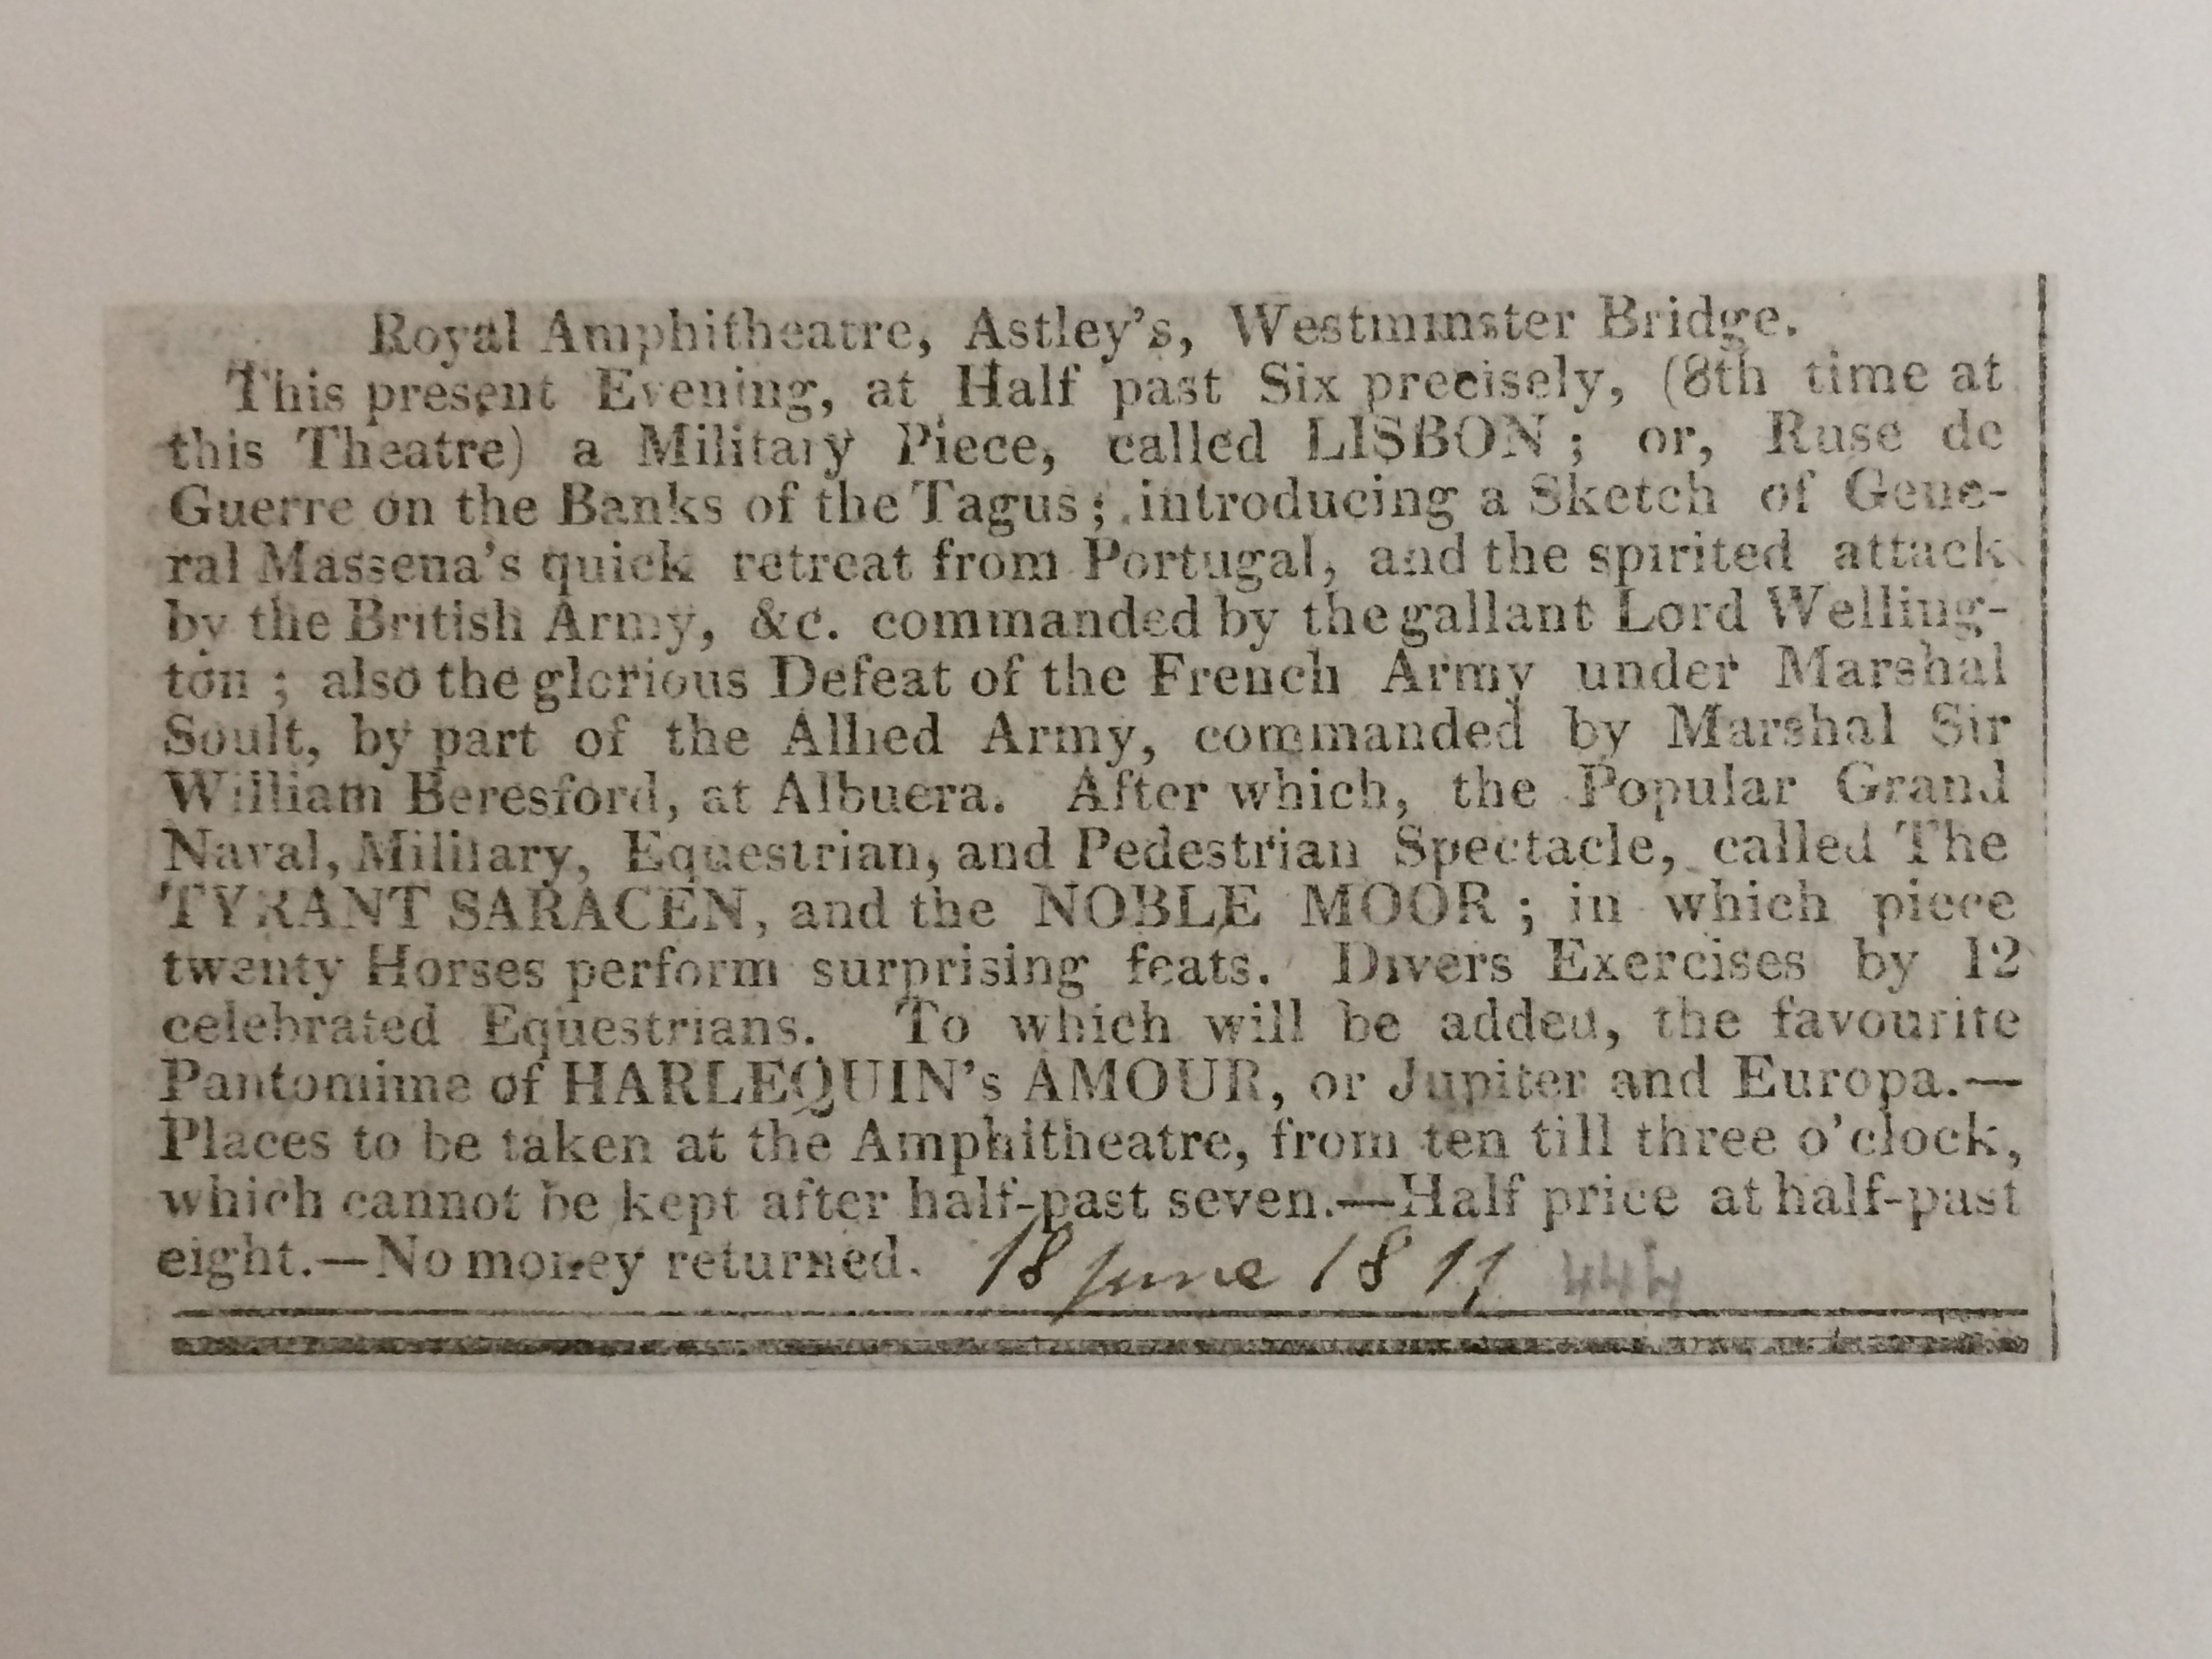 Royal Amphitheatre, Astley's, Westminster Bridge.
This present Evening, at Half past Six precisely, (8th time at
this Theatre) a Military Piece, called LISBON; or, Ruse de
Guerre on the Banks of the Tagus; introducing a Sketch of Gene-
ral Massena's quick retreat from Portugal, and the spirited attack
by the British Army, &c. commanded by the gallant Lord Welling-
ton; also the glorious Defeat of the French Army under Marshal
Soult, by part of the Allied Army, commanded by Marshal Sir
William Beresford, at Albuera. After which, the Popular Grand
Naval, Military, Equestrian, and Pedestrian Spectacle, called The
TYRANT SARACEN, and the NOBLE MOOR; in which piece
twenty Horses perform surprising feats. Divers Exercises by 12
celebrated Equestrians. To which will be added, the favourite
Pantomime of HARLEQUIN's AMOUR, or Jupiter and Europa.—
Places to be taken at the Amphitheatre, from ten till three o'clock,
which cannot be kept after half-past seven.—Half price at half-past
eight.—No money returned. 18 June 1811